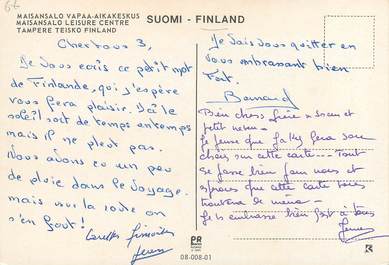 62
MAISANSALO VAPAA-AIKAKESKUS
MAISANSALO LEISURE CENTRE
TAMPERE TEISKO FINLAND
SUOMI - FINLAND
Chers tous 3,
Je vous écris ce petit mot
de Finlande, qui j'espère
vous fera plaisir. Ici le
soleil sort de temps en temps
mais il ne pleut pas.
Nous avons eu un peu
de pluie dans le voyage
mais sur la route on
s'en fout!
Je vais vous quitter en
vous embrassant bien
fort.
Bernard
Bien chers frère soeur et
petit neveu
Je pense que fera son
choix sur cette carte... Tout
se passe bien pour nous et
que cette carte vous
trouvera de même
Je vs embrasse bien fort à tous
PR
08-008-01